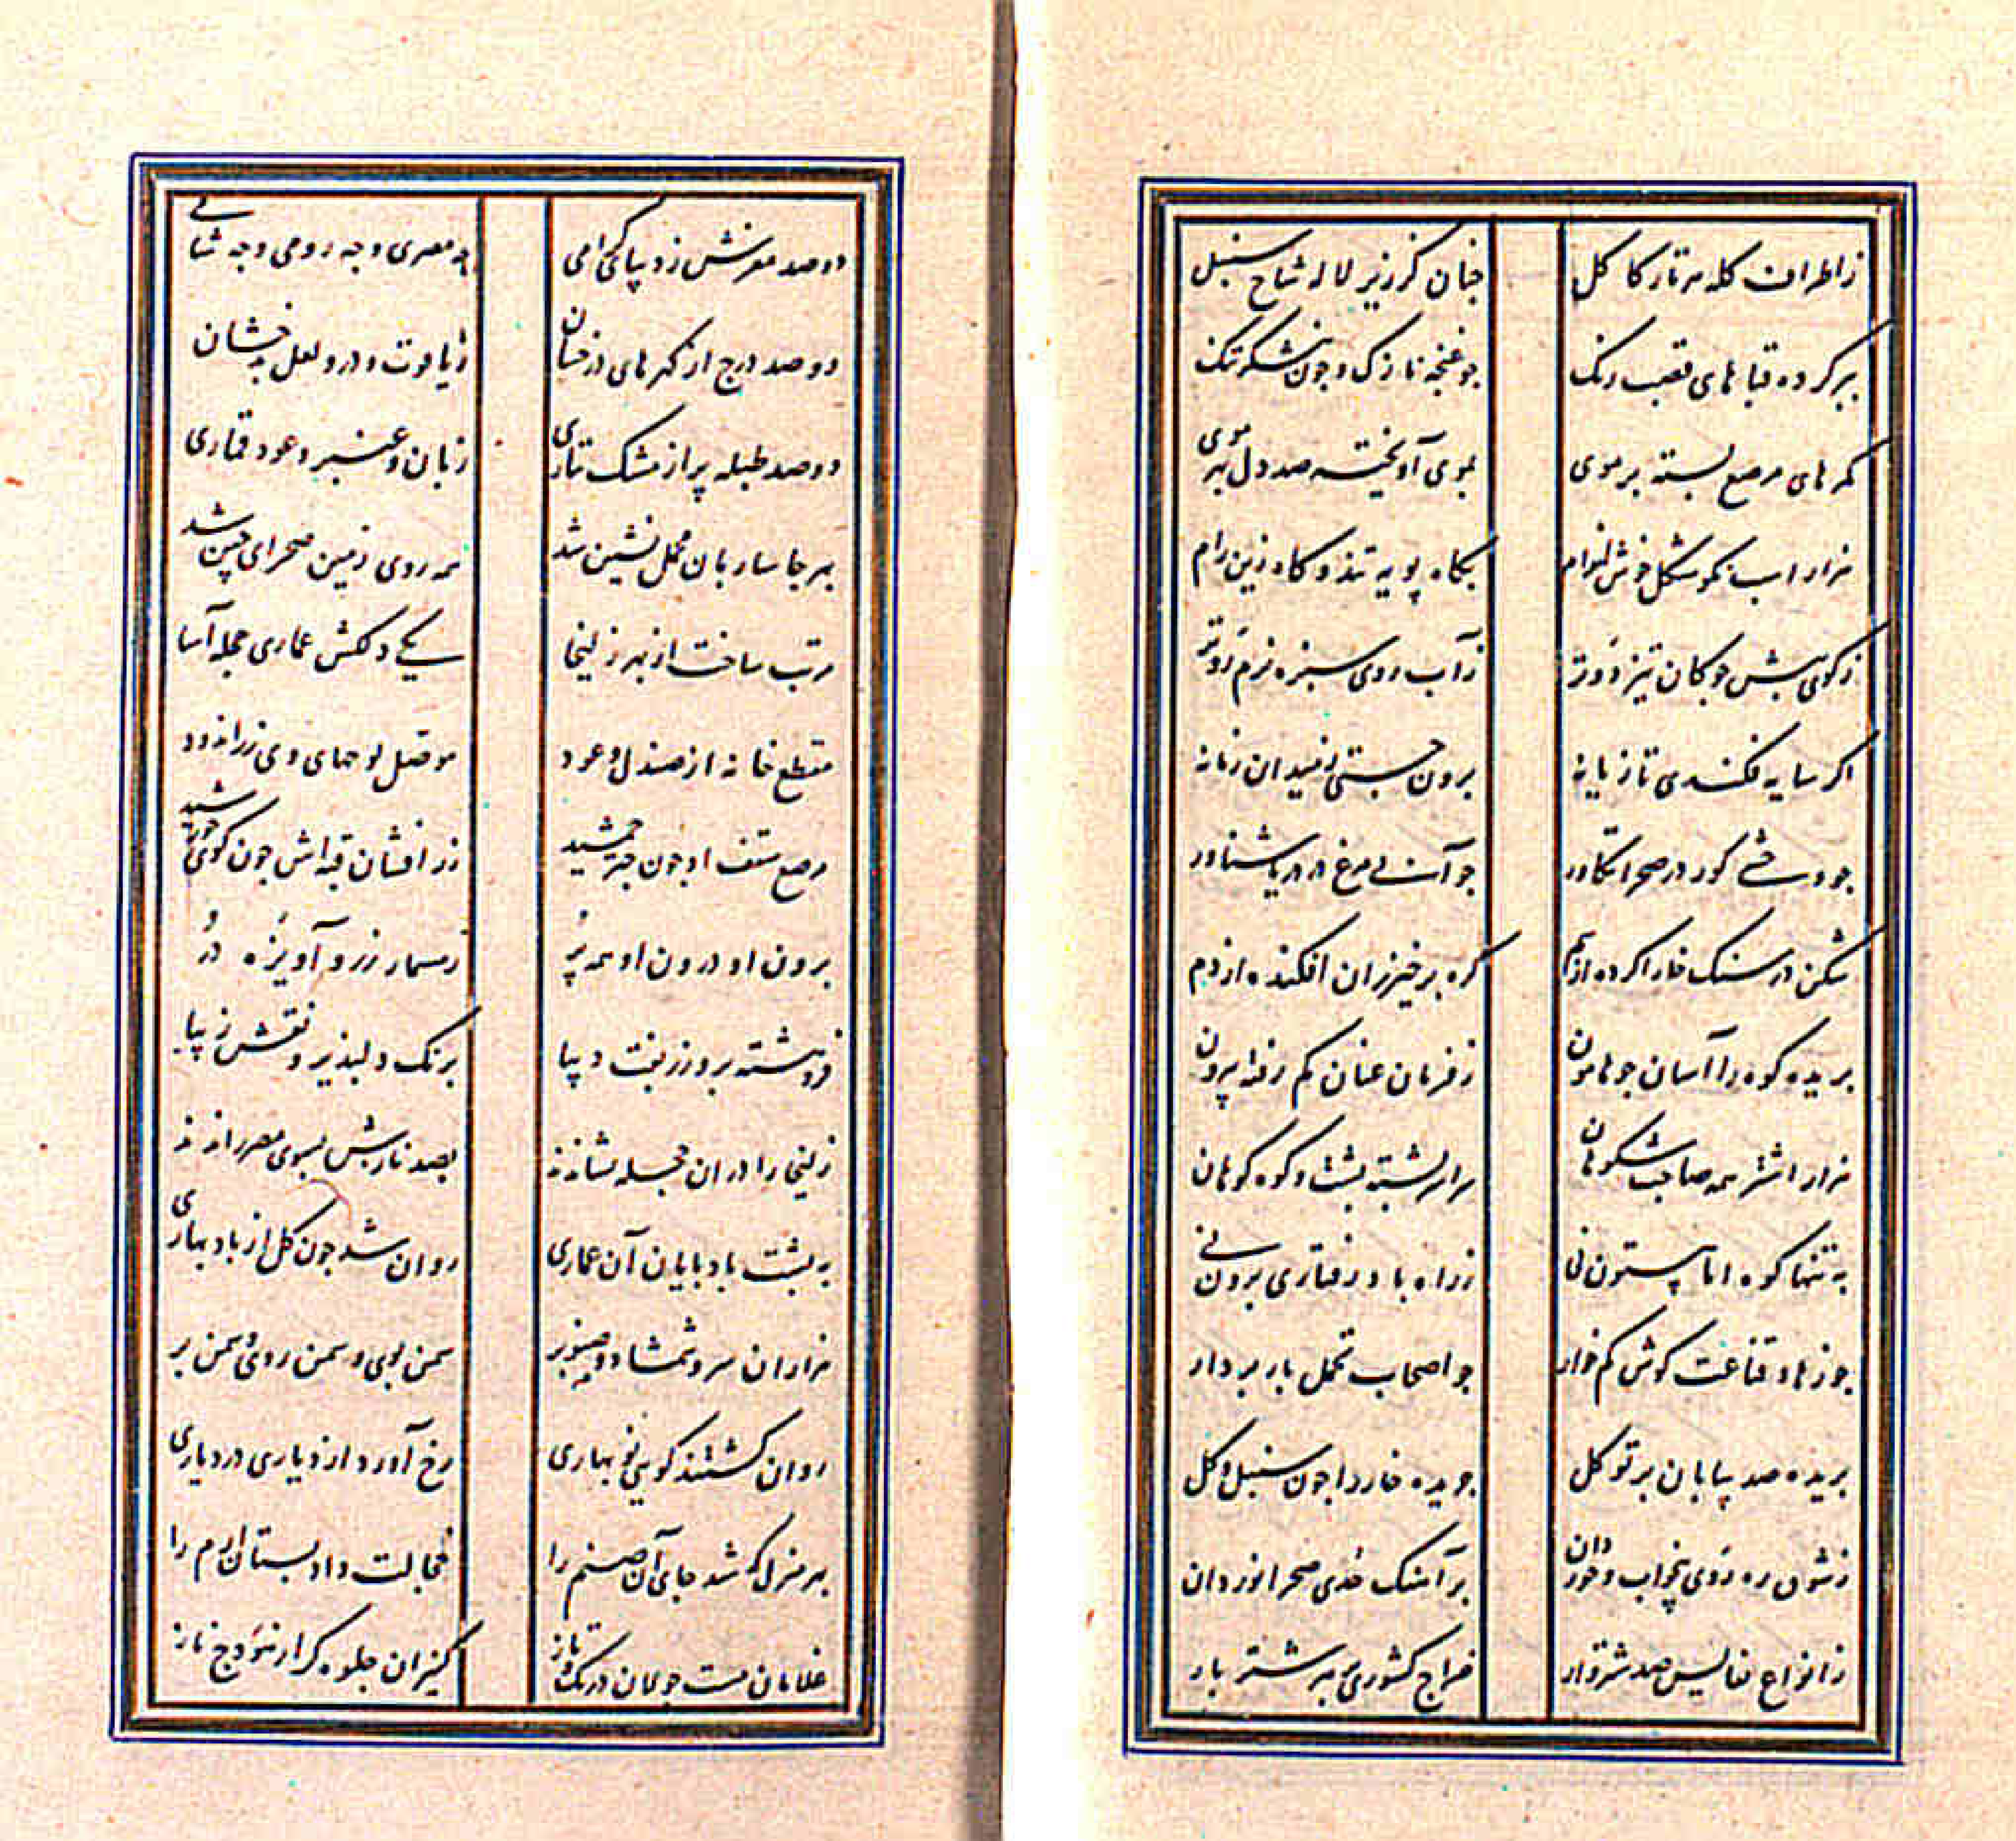 ز اطراف کله هر تار کاکل چنان کز زیر لاله شاخ سنبل
ببر کرده قباهای قصب رنگ چو غنچه نازک و چون نیشکر تنگ
کمرهای مرصع بسته بر موی بموی آویخته صد دل بهر موی
هزار اسب نکوشکل خوش اندام بگاه پویه تند و گاه زین رام
ز گوی پیش چوگان تیزدوتر ز آب روی سبزه نرم‌روتر
اگر سایه فکندی تازیانه برون جستی ز میدان زمانه
چو وحشی گور در صحرا تگاور چو آبی مرغ در دریا شناور
شکن در سنگ خارا کرده از سم گره بر خیزران افکنده از دم
بریده کوه را آسان چو هامون ز فرمان عنان کم رفته بیرون
هزار اشتر همه صاحب شکوهان سراسر پشته پشت و کوه کوهان
به تنها کوه اما بیستون نی ز راه باد رفتاری برون نی
چو زهاد قناعت کوش کم خوار چو اصحاب تحمل بار بردار
بریده صد بیابان بر توکل چریده خار را چون سنبل و گل
ز شوق ره روی بیخواب و خوردان بر آهنگ حدی صحرا نوردان
ز انواع نفایس صد شتروار خراج کشوری بر هر شتر بار
دو صد مفرش ز دیبای گرامی چه مصری و چه رومی و چه شامی
دو صد درج از گهرهای درخشان ز یاقوت و در و لعل بدخشان
دو صد طبله پر از مشک تتاری ز بان و عنبر و عود قماری
بهر جا ساربان محمل نشین شد همه روی زمین صحرای چین شد
مرتب ساخت از بهر زلیخا یکی دلکش عماری حجله آسا
مقطع خانه از صندل و عود موصل لوحهای وی زراندود
مرصع سقف او چون چتر جمشید زرافشان قبه‌اش چون گوی خورشید
برون او درون او همه پر ز مسمار زر و آویزه در
فروهشته برو زربفت دیبا برنگ دلپذیر و نقش زیبا
زلیخا را در آن حجله نشاندند بصد نازش بسوی مصر راندند
به پشت بادپایان آن عماری روان شد چون گل از باد بهاری
هزاران سرو و شمشاد و صنوبر سمن بوی و سمن روی و سمن بر
روان گشتند گویی نوبهاری رخ آورد از دیاری در دیاری
بهر منزل که شد جای آن صنم را خجالت داد بستان ارم را
غلامان مست جولان در تک و تاز کنیزان جلوه‌گر از هودج ناز